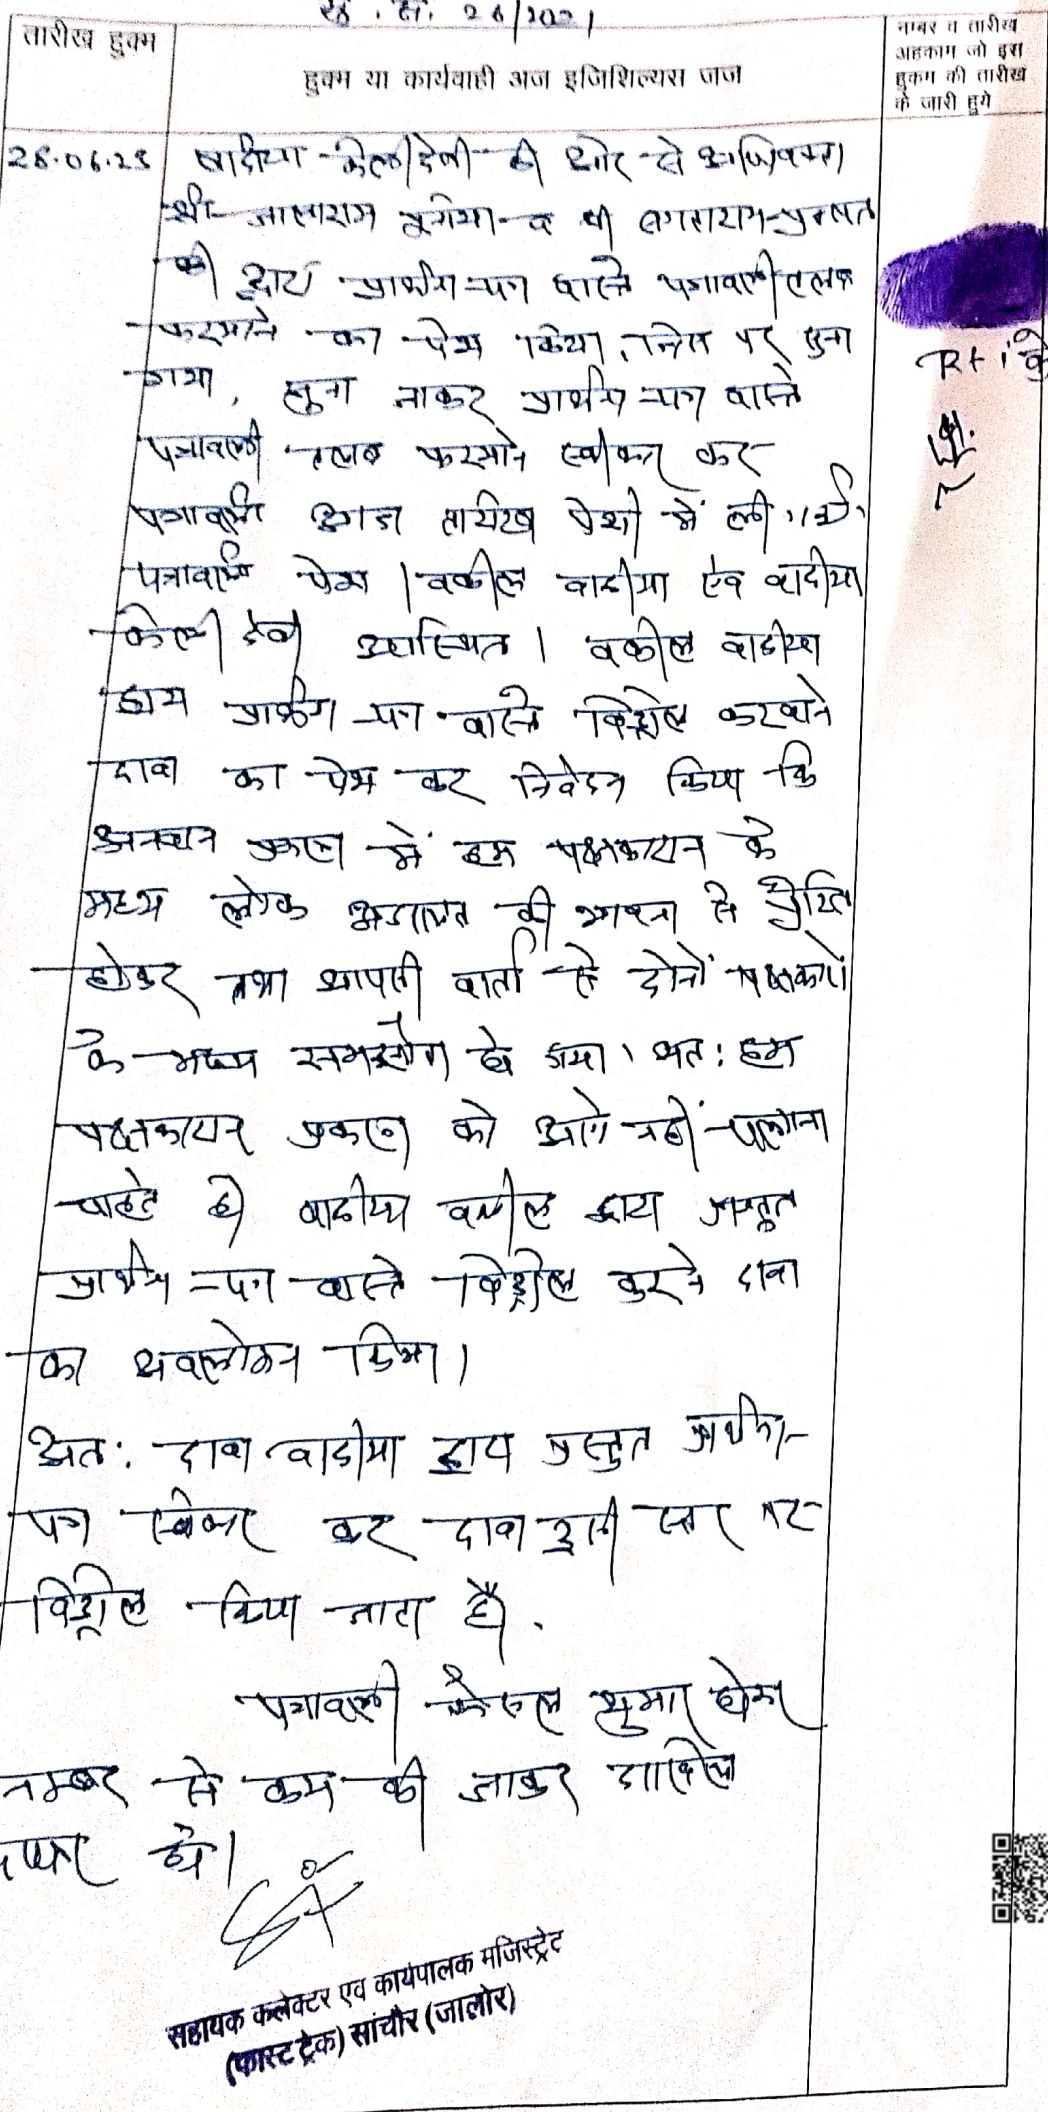 26/2021
तारीख हुक्म
हुक्म या कार्यवाही अज इजिशिल्यस जज
नम्बर व तारीख
अहकाम जो इस
हुकम की तारीख
के जारी हुये
28.06.23 वादीया केलीदेवी की ओर से अधिवक्ता
श्री व श्री
की द्वारा प्रार्थना पत्र वास्ते पत्रावली तलब
फरमाने का पेश किया, जिस पर सुना
गया, सुना जाकर प्रार्थना पत्र वास्ते
पत्रावली तलब फरमाने स्वीकार कर
पत्रावली आज तारीख पेशी में ली गई।
पत्रावली पेश। वकील वादीया एंव वादीया
केली देवी उपस्थित। वकील वादीया
द्वारा प्रार्थना पत्र वास्ते विड्रोल करवाने
दावा का पेश कर निवेदन किया कि
प्रकरण में हम पक्षकारान के
मध्य लोक अदालत की भावना से प्रेरित
होकर तथा आपसी वार्ता से दोनों पक्षकारों
के मध्य समझौता हो गया। अत: हम
पक्षकारान प्रकरण को आगे नहीं चलाना
चाहते है। वादीया वकील द्वारा प्रस्तुत
प्रार्थना पत्र वास्ते विड्रोल करने दावा
का अवलोकन किया।
अत: दावा वादीया द्वारा प्रस्तुत प्रार्थना
पत्र स्वीकार कर दावा इसी स्तर पर
विड्रोल किया जाता है.
पत्रावली फैसल सुमार होकर
नम्बर से कम की जाकर दाखिल
दफ्तर हो।
सहायक कलेक्टर एवं कार्यपालक मजिस्ट्रेट
(फास्ट ट्रेक) सांचौर (जालोर)